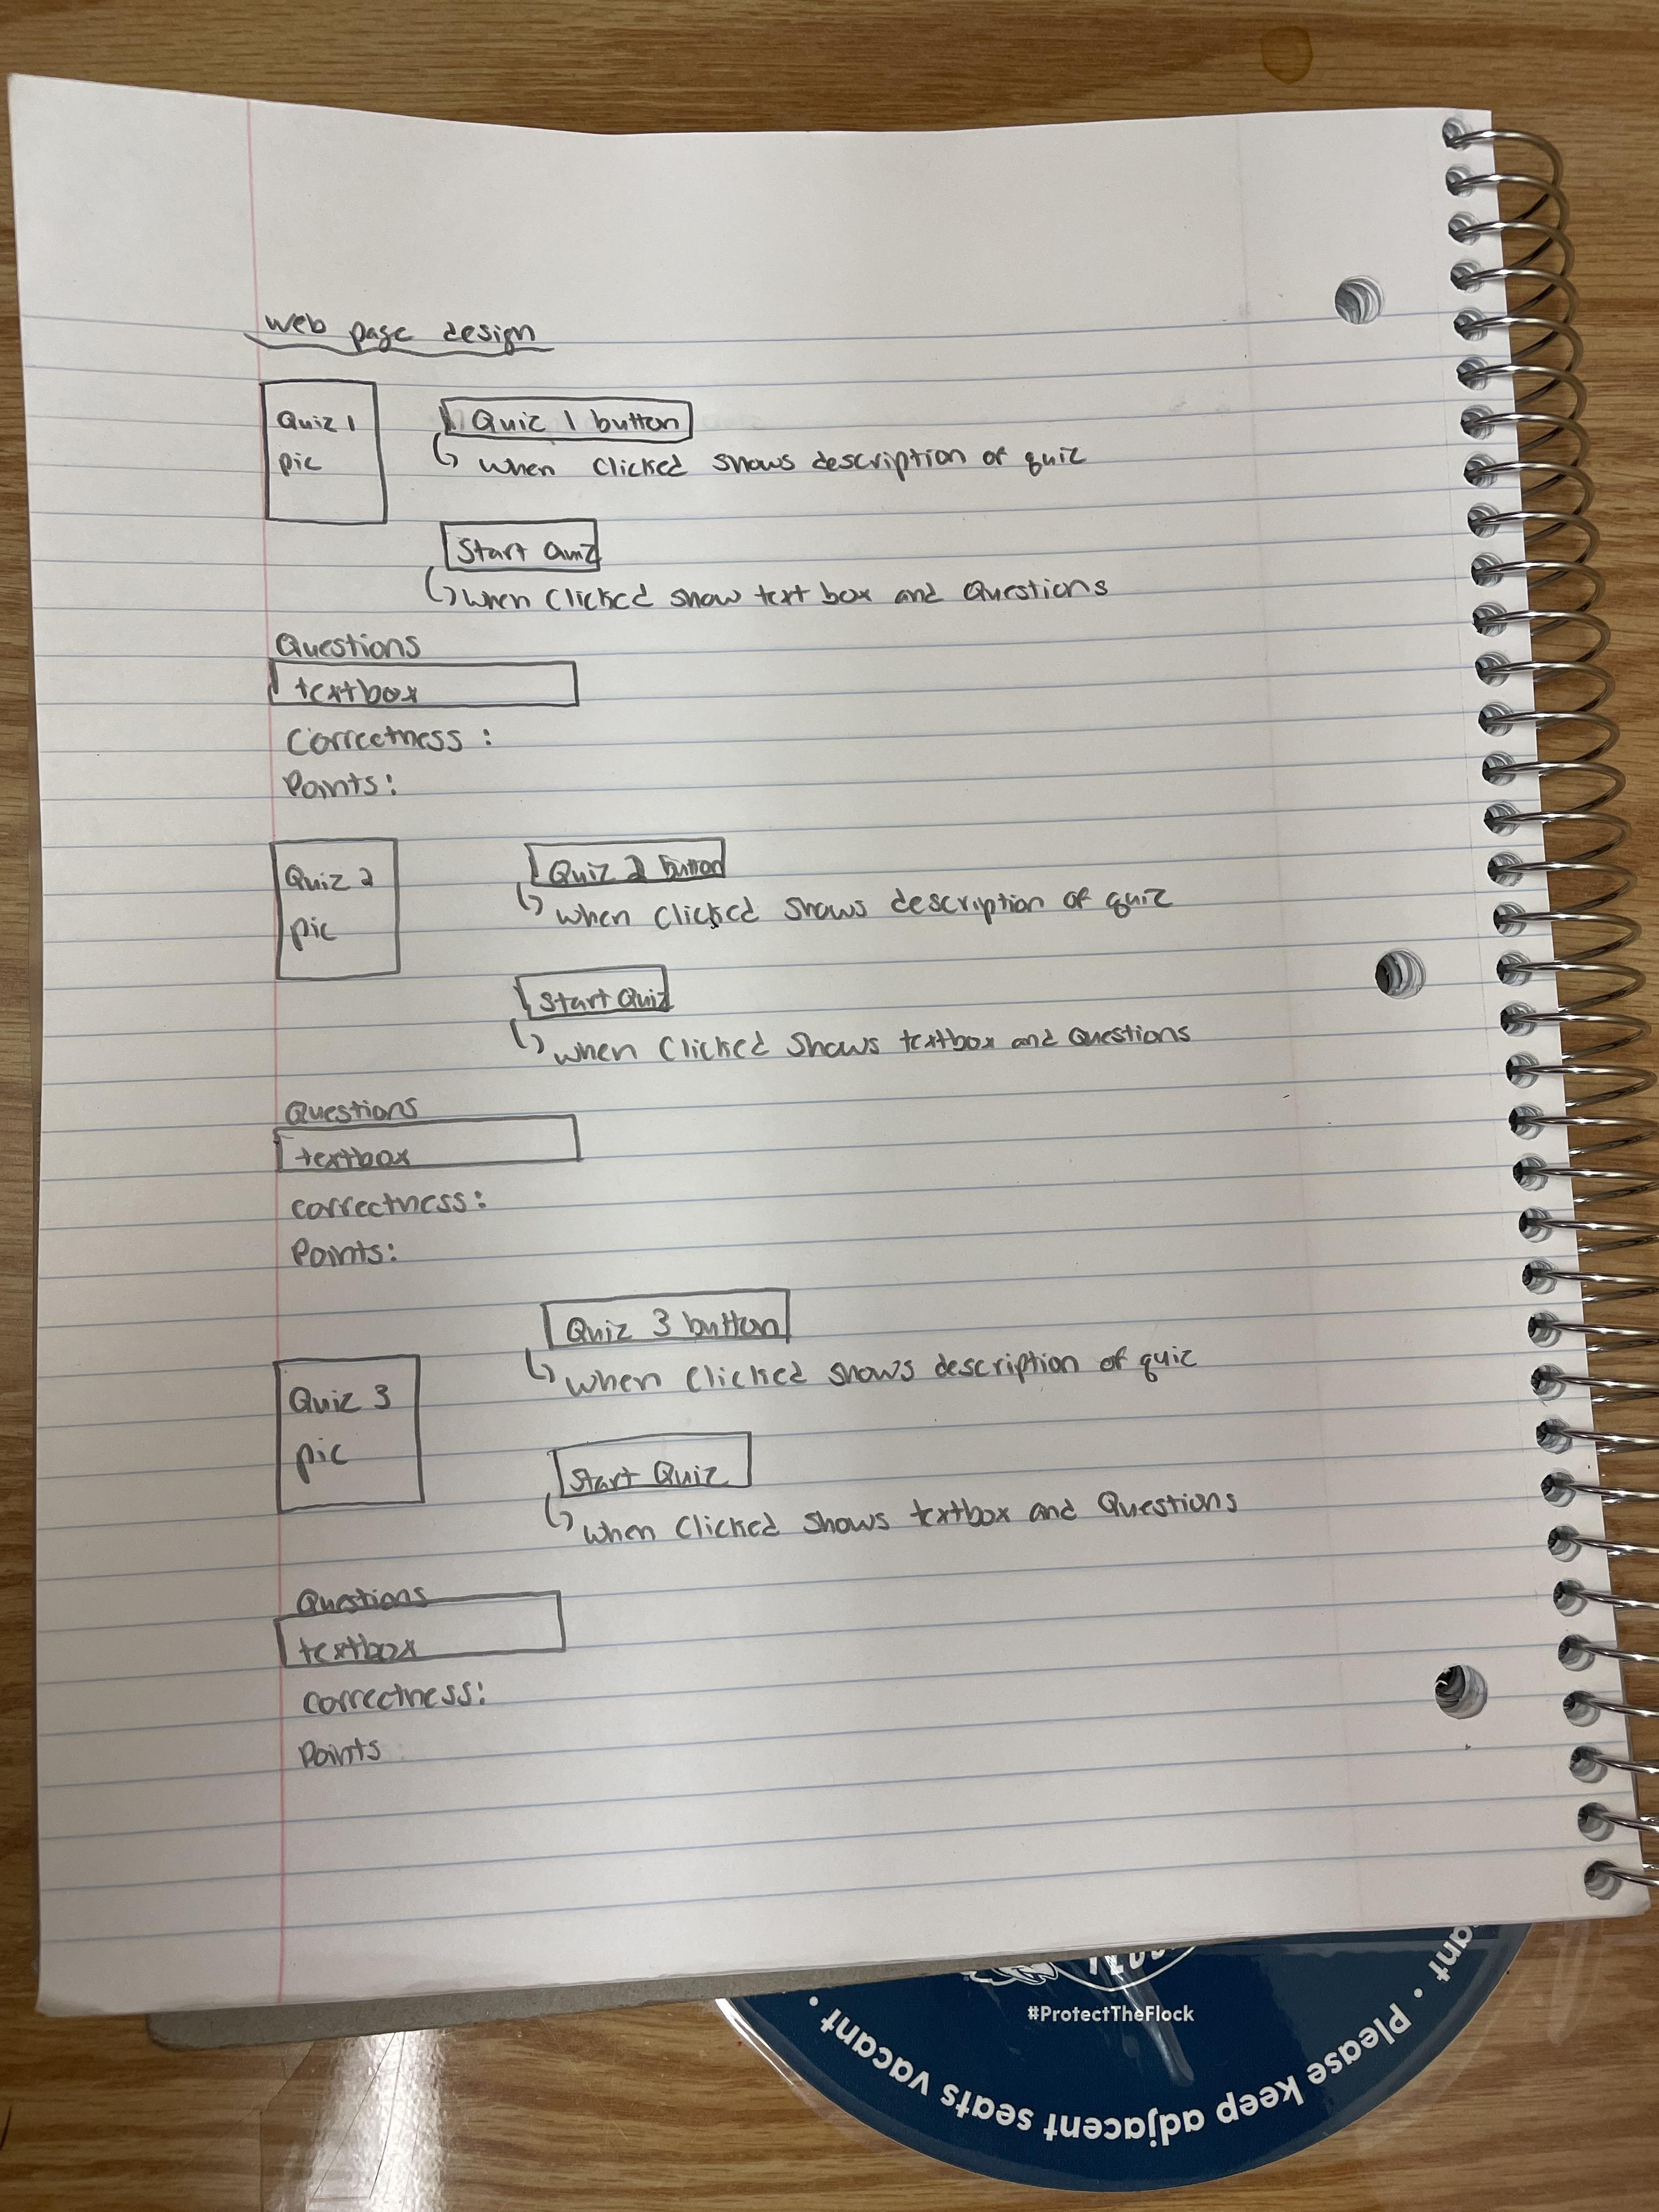 web page design
Quiz 1
pic
Quiz 1 button
when clicked shows description of quiz
Start Quiz
when clicked show text box and Questions
Questions
textbox
Correctness :
Points:
Quiz 2
pic
Quiz 2 button
when clicked shows description of quiz
Start Quiz
when clicked shows textbox and Questions
Questions
textbox
correctness:
Points:
Quiz 3 button
when clicked shows description of quiz
Quiz 3
pic
Start Quiz
when clicked shows textbox and Questions
Questions
textbox
correctness:
Points
#ProtectTheFlock
• Please keep adjacent seats vacant •